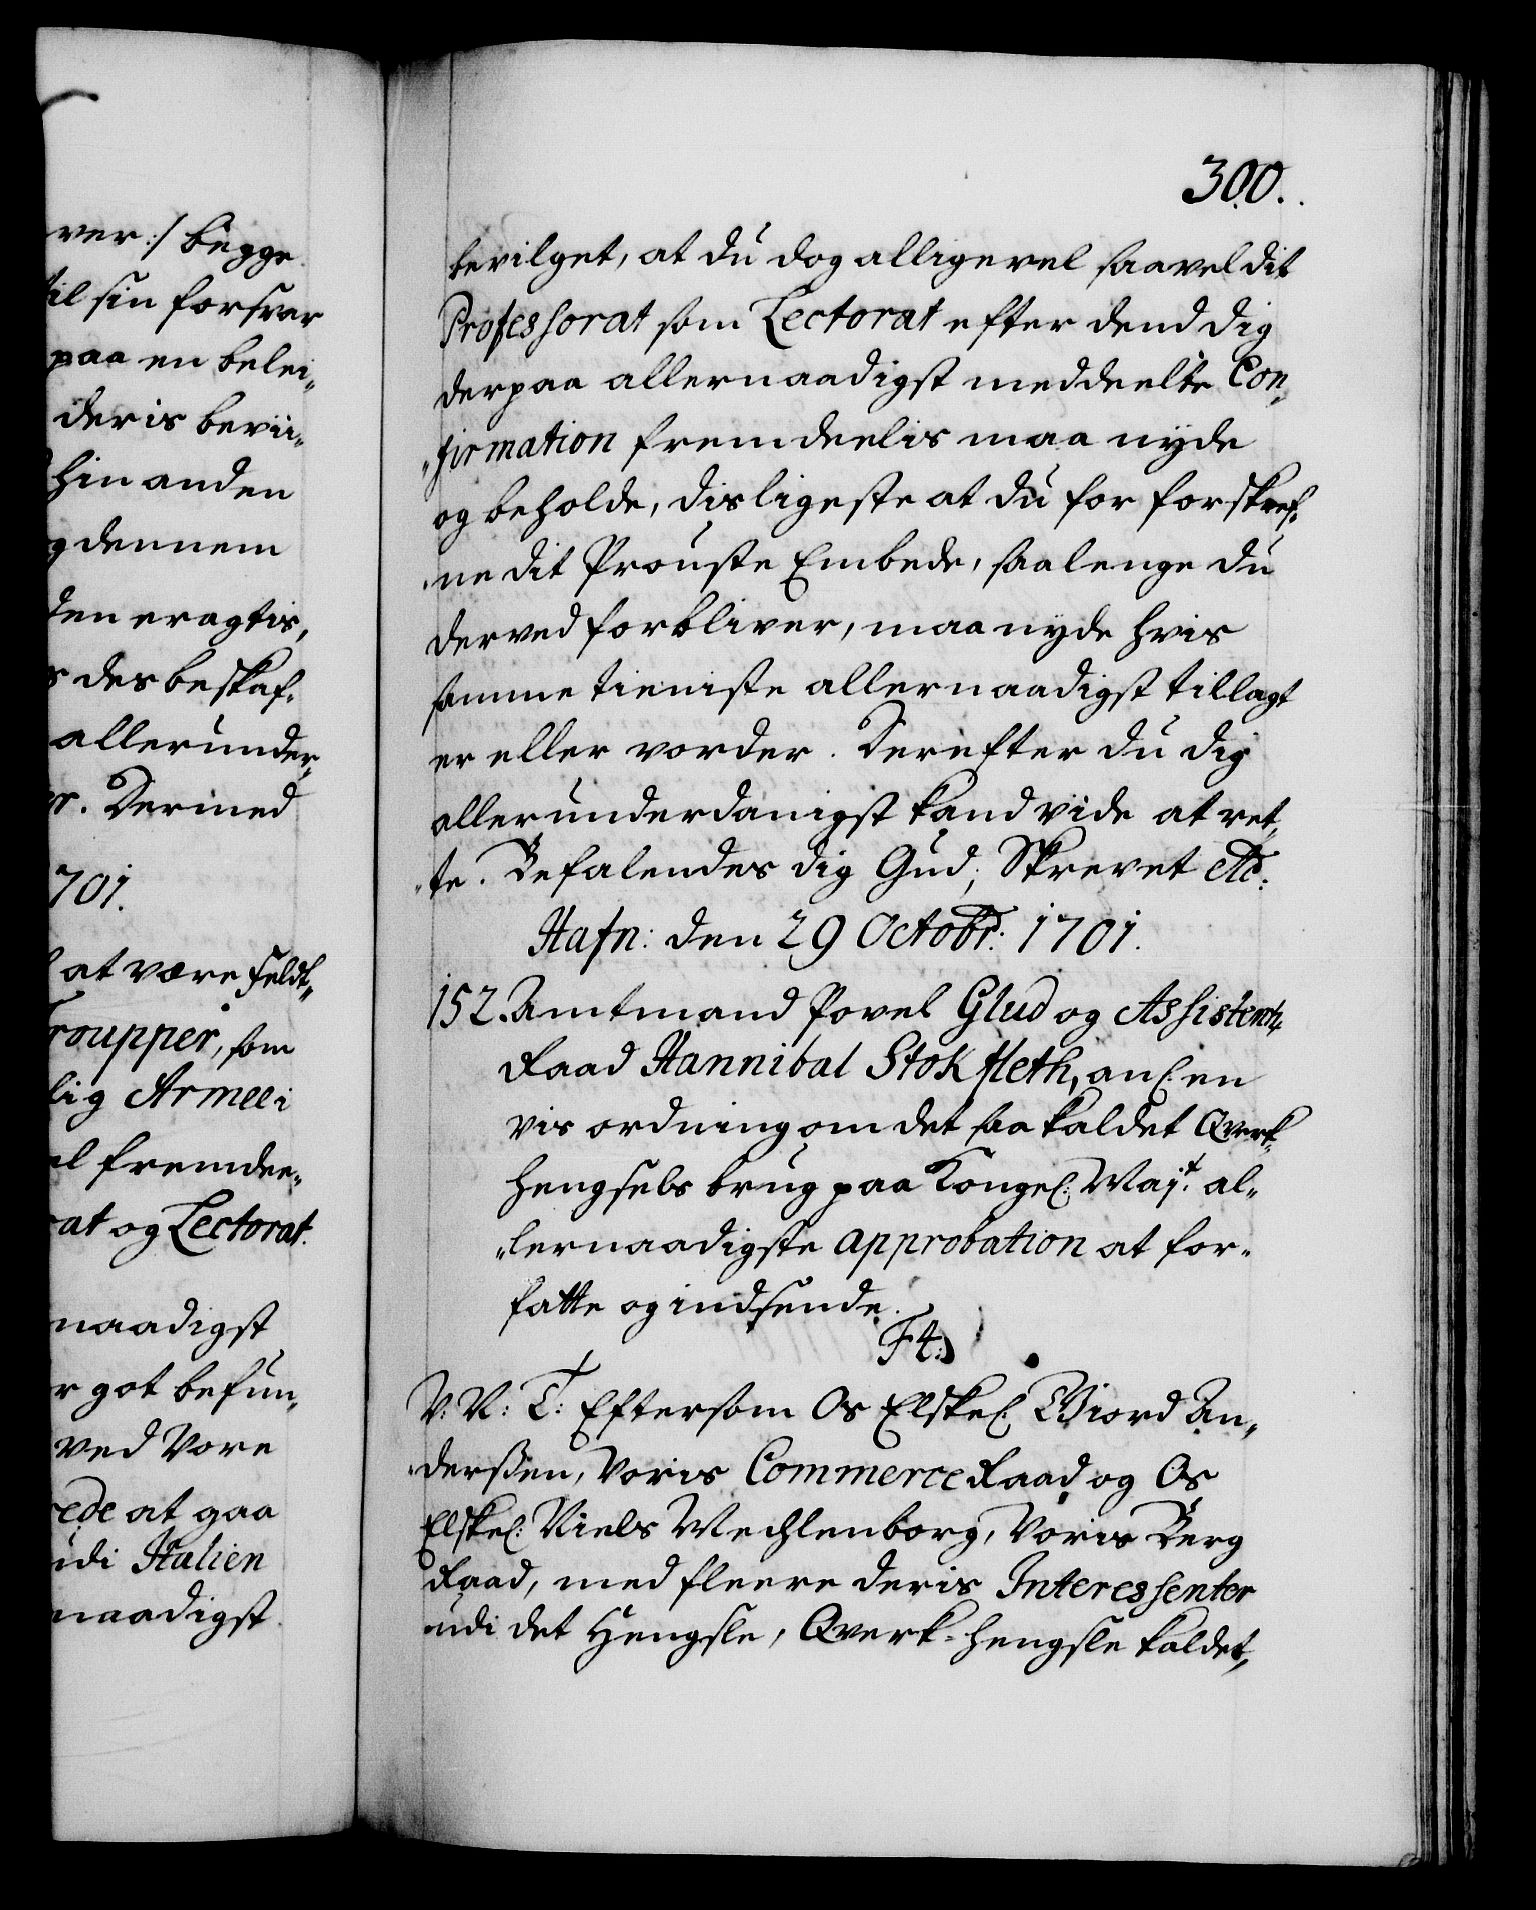 ver :/ begge
til sin forsvar
paa en belei„
deris bevii„
hin anden
g dennem
den eragtis,
s des beskaf„
allerunder„
er. Dermed
701.
at være Feldt„
Troupper, som
lig Armee i
el fremdee„
rat og Lectorat.
naadigst
r got befun„
ved Vore
rede at gaa
udi Italien
naadigst.
300.
bevilget, at du dog alligevel saavel dit
Professorat som Lectorat efter dend dig
derpaa allernaadigst meddeelte Con„
„firmation fremdeelis maa nyde
og beholde, disligeste at du for forskref„
„ne dit Prouste Embede, saalenge du
derved forbliver, maa nyde hvis
samme tieniste allernaadigst tillagt
er eller vorder. Derefter du dig
allerunderdanigst kand vide at ret„
„te. Befalendes dig Gud; Skrevet etc:
Hafn: den 29 Octobr: 1701.
152. Amtmand Povel Glud og Assistentz
Raad Hannibal Stokfleth, anl: en
vis ordning om det saa kaldet Qverk„
hengsels brug paa Kongel: Maj:t al„
„lernaadigste approbation at for„
fatte og indsende.
F4:
V: N: T: Eftersom Os Elskel: Wiord An„
„derßen, Voris Commerce Raad og Os
Elskel: Niels Mechlenborg, Voris Berg
Raad, med fleere deris Interessenter
udi det Hengsle, Qverk-hengsle kaldet,